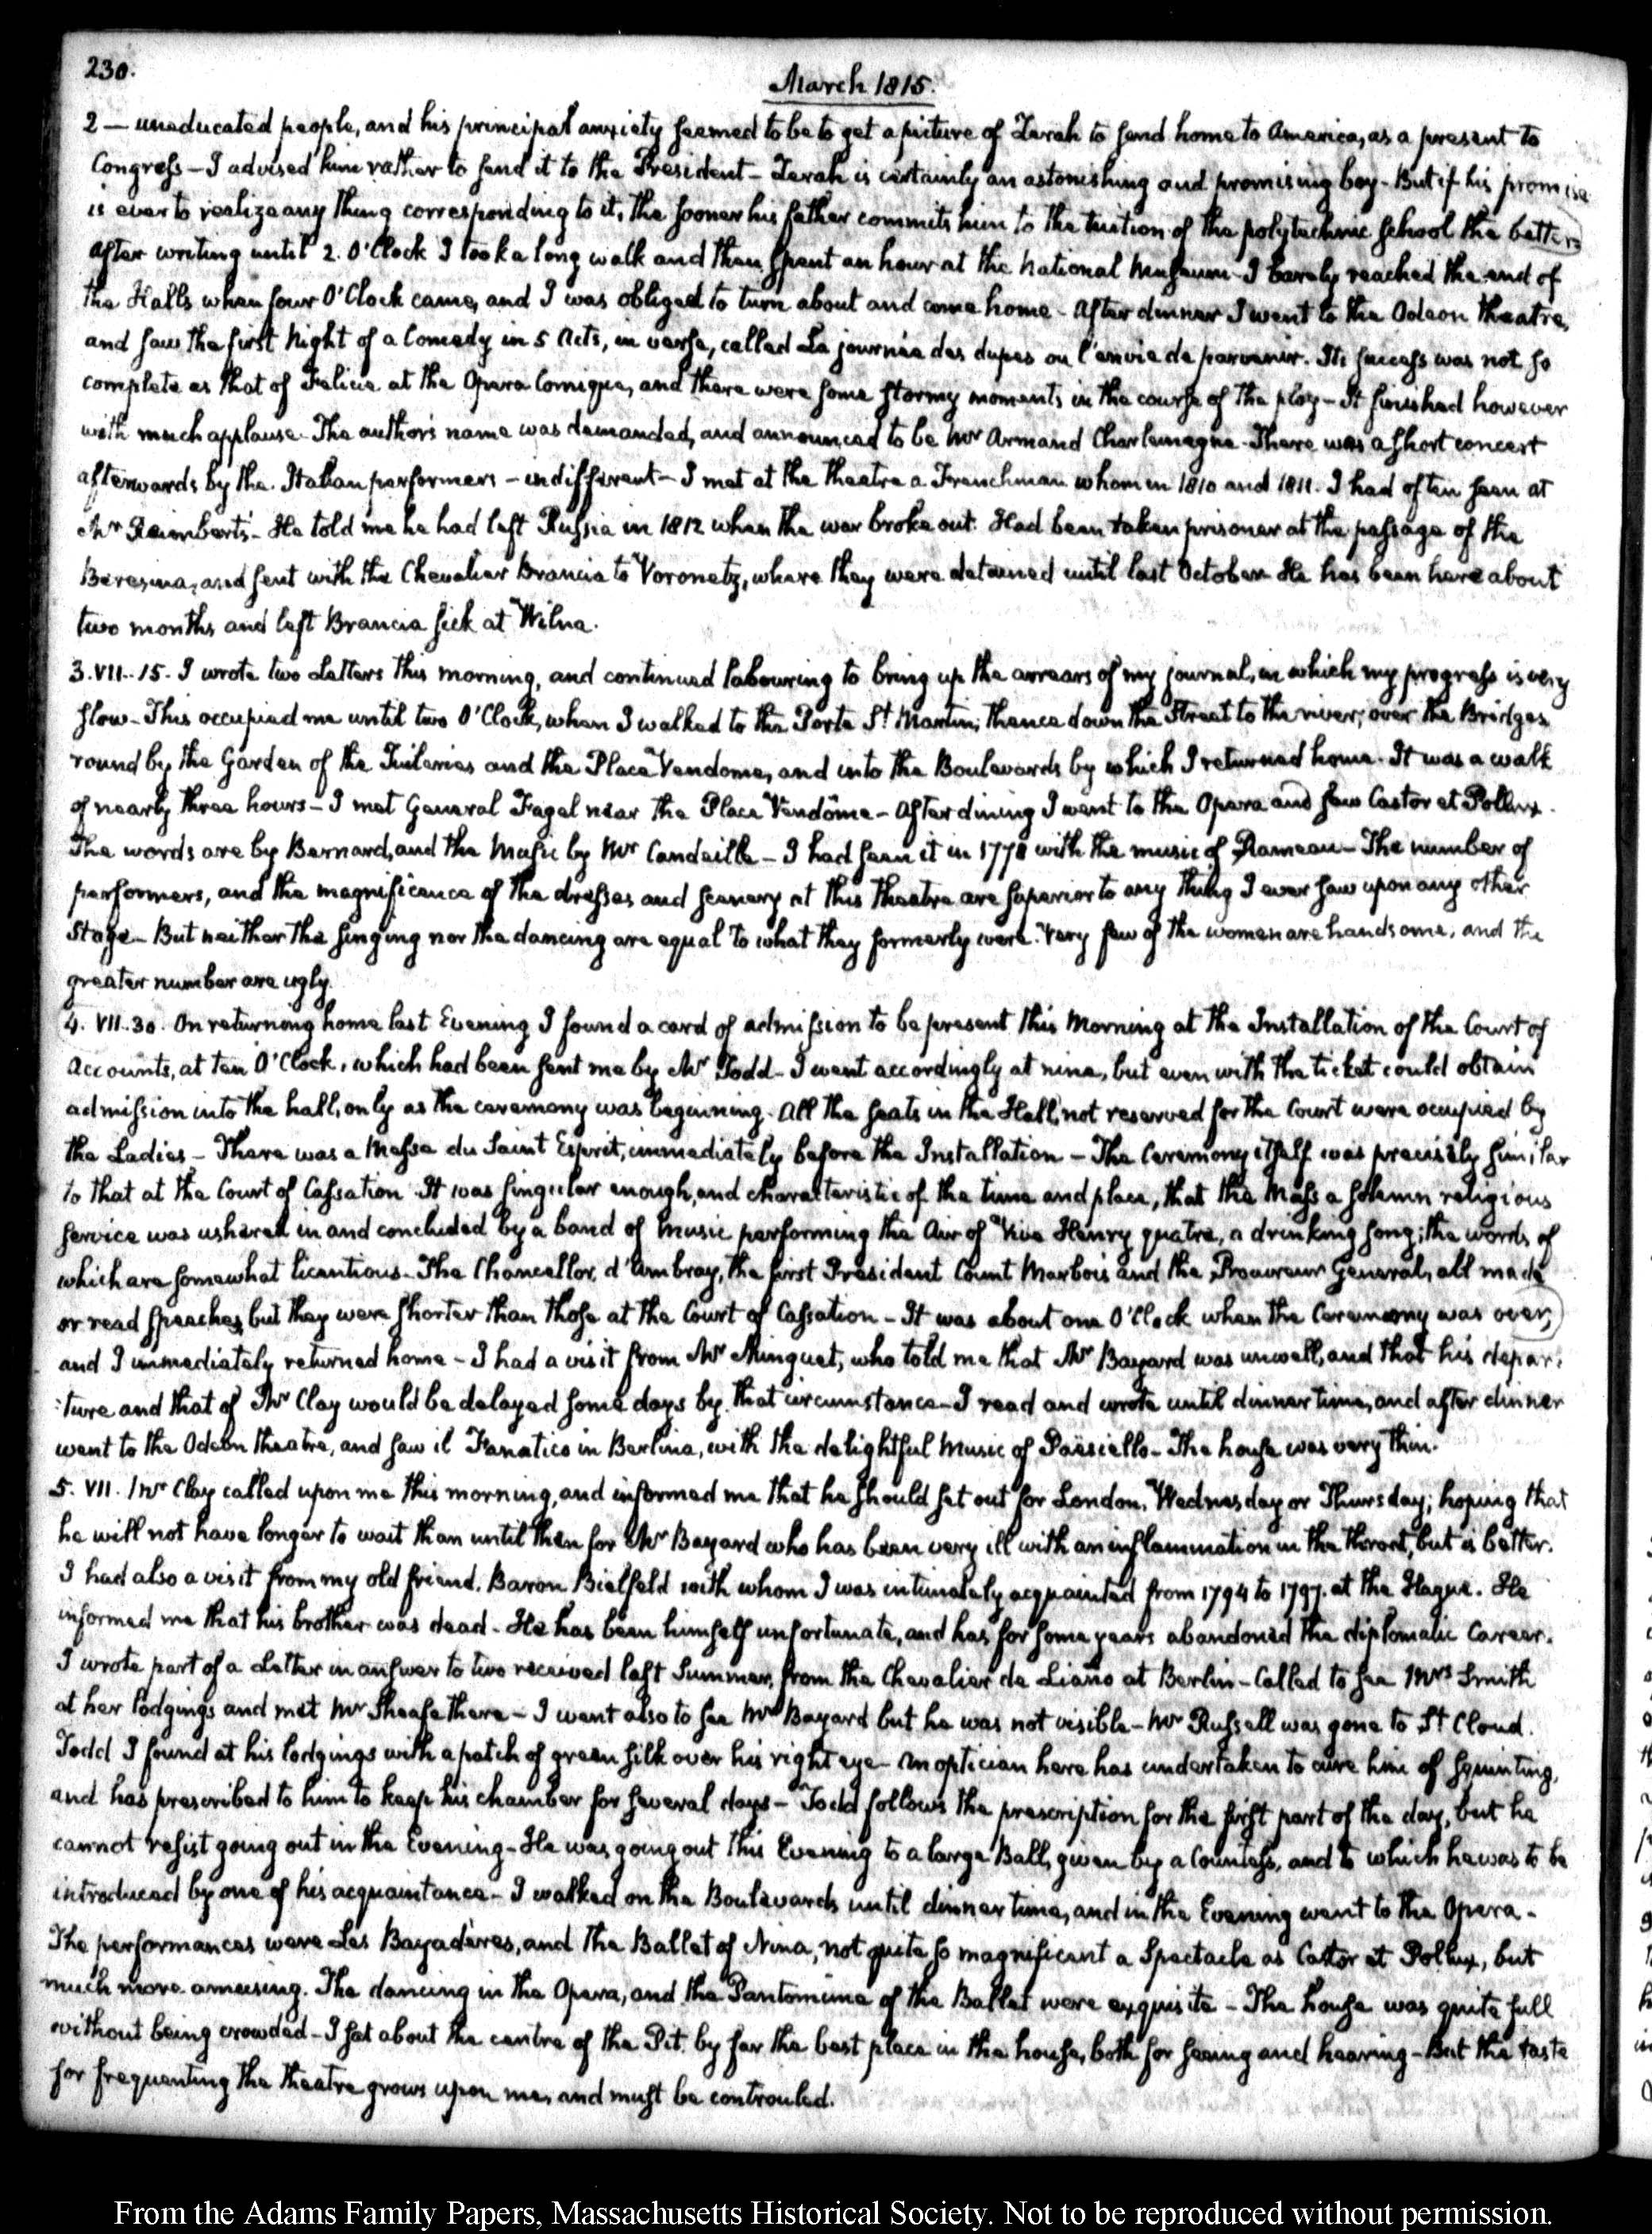 230.
March 1815.
2 — uneducated people, and his principal anxiety seemed to be to get a picture of Zerah to send home to America, as a present to
Congress — I advised him rather to send it to the President — Zerah is certainly an astonishing and promising boy — But if his promise
is ever to realize any thing corresponding to it, the sooner his father commits him to the tuition of the polytechnic school the better.
After writing until 2. O'Clock I took a long walk and then spent an hour at the National Museum — I barely reached the end of
the Halls when four O'Clock came, and I was obliged to turn about and come home — After dinner I went to the Odeon theatre,
and saw the first Night of a Comedy in 5 Acts, in verse, called La journée des dupes ou l'envie de parvenir. Its success was not so
complete as that of Felicie at the Opera Comique, and there were some stormy moments in the course of the play — It finished however
with much applause. The author's name was demanded, and announced to be Mr Armand Charlemagne. There was a short concert
afterwards by the Italian performers — indifferent — I met at the theatre a Frenchman whom in 1810 and 1811. I had often seen at
Mr Raimbert's — He told me he had left Russia in 1812 when the war broke out. Had been taken prisoner at the passage of the
Beresina, and sent with the Chevalier Brancia to Voronetz, where they were detained until last October. He has been here about
two months and left Brancia sick at Wilna.
3. VII.. 15. I wrote two Letters this morning, and continued labouring to bring up the arrears of my journal, in which my progress is very
slow — This occupied me until two O'Clock, when I walked to the Porte St. Martin; thence down the Street to the river; over the Bridges
round by the Garden of the Tuileries and the Place Vendome, and into the Boulevards by which I returned home. It was a walk
of nearly three hours — I met General Fagel near the Place Vendôme — After dining I went to the Opera and saw Castor et Pollux.
The words are by Bernard, and the Music by Mr Candeille — I had seen it in 1778 with the music of Rameau — The number of
performers, and the magnificence of the dresses and scenery at this theatre are superior to any thing I ever saw upon any other
Stage — But neither the singing nor the dancing are equal to what they formerly were. Very few of the women are handsome, and the
greater number are ugly.
4. VII. 30. On returning home last Evening I found a card of admission to be present this Morning at the Installation of the Court of
Accounts, at ten O'Clock, which had been sent me by Mr Todd — I went accordingly at nine, but even with the ticket could obtain
admission into the hall, only as the ceremony was beginning. All the seats in the Hall, not reserved for the Court were occupied by
the Ladies — There was a Messe du Saint Esprit, immediately before the Installation — The Ceremony itself was precisely similar
to that at the Court of Cassation. It was singular enough, and characteristic of the time and place, that the Mass a solemn religious
service was ushered in and concluded by a band of music performing the Air of Vive Henry quatre, a drinking song; the words of
which are somewhat licentious. The Chancellor d'Ambray, the first President Count Marbois and the Procureur General, all made
or read speeches, but they were shorter than those at the Court of Cassation — It was about one O'Clock when the Ceremony was over,
and I immediately returned home — I had a visit from Mr Minguet, who told me that Mr Bayard was unwell, and that his depar-
:ture and that of Mr Clay would be delayed some days by that circumstance — I read and wrote until dinner time, and after dinner
went to the Odeon theatre, and saw il Fanatico in Berlina, with the delightful Music of Paësiello — The house was very thin.
5. VII. Mr Clay called upon me this morning, and informed me that he should set out for London, Wednesday or Thursday; hoping that
he will not have longer to wait than until then for Mr Bayard who has been very ill with an inflammation in the throat, but is better.
I had also a visit from my old friend, Baron Bielfeld with whom I was intimately acquainted from 1794 to 1797. at the Hague. He
informed me that his brother was dead — He has been himself unfortunate, and has for some years abandoned the diplomatic Career.
I wrote part of a Letter in answer to two received last Summer, from the Chevalier de Liaño at Berlin — Called to see Mrs Smith
at her lodgings and met Mr Sheafe there — I went also to see Mr Bayard but he was not visible — Mr Russell was gone to St Cloud.
Todd I found at his lodgings with a patch of green silk over his right eye — An optician here has undertaken to cure him of squinting,
and has prescribed to him to keep his chamber for several days — Todd follows the prescription for the first part of the day, but he
cannot resist going out in the Evening — He was going out this Evening to a large Ball, given by a Countess, and to which he was to be
introduced by one of his acquaintance — I walked on the Boulevards until dinner time, and in the Evening went to the Opera —
The performances were Les Bayadères, and the Ballet of Nina, not quite so magnificent a Spectacle as Castor et Pollux, but
much more amusing. The dancing in the Opera, and the Pantomime of the Ballet were exquisite — The house was quite full
without being crowded — I sat about the centre of the Pit by far the best place in the house, both for seeing and hearing — But the taste
for frequenting the theatre grows upon me, and must be controuled.
From the Adams Family Papers, Massachusetts Historical Society. Not to be reproduced without permission.